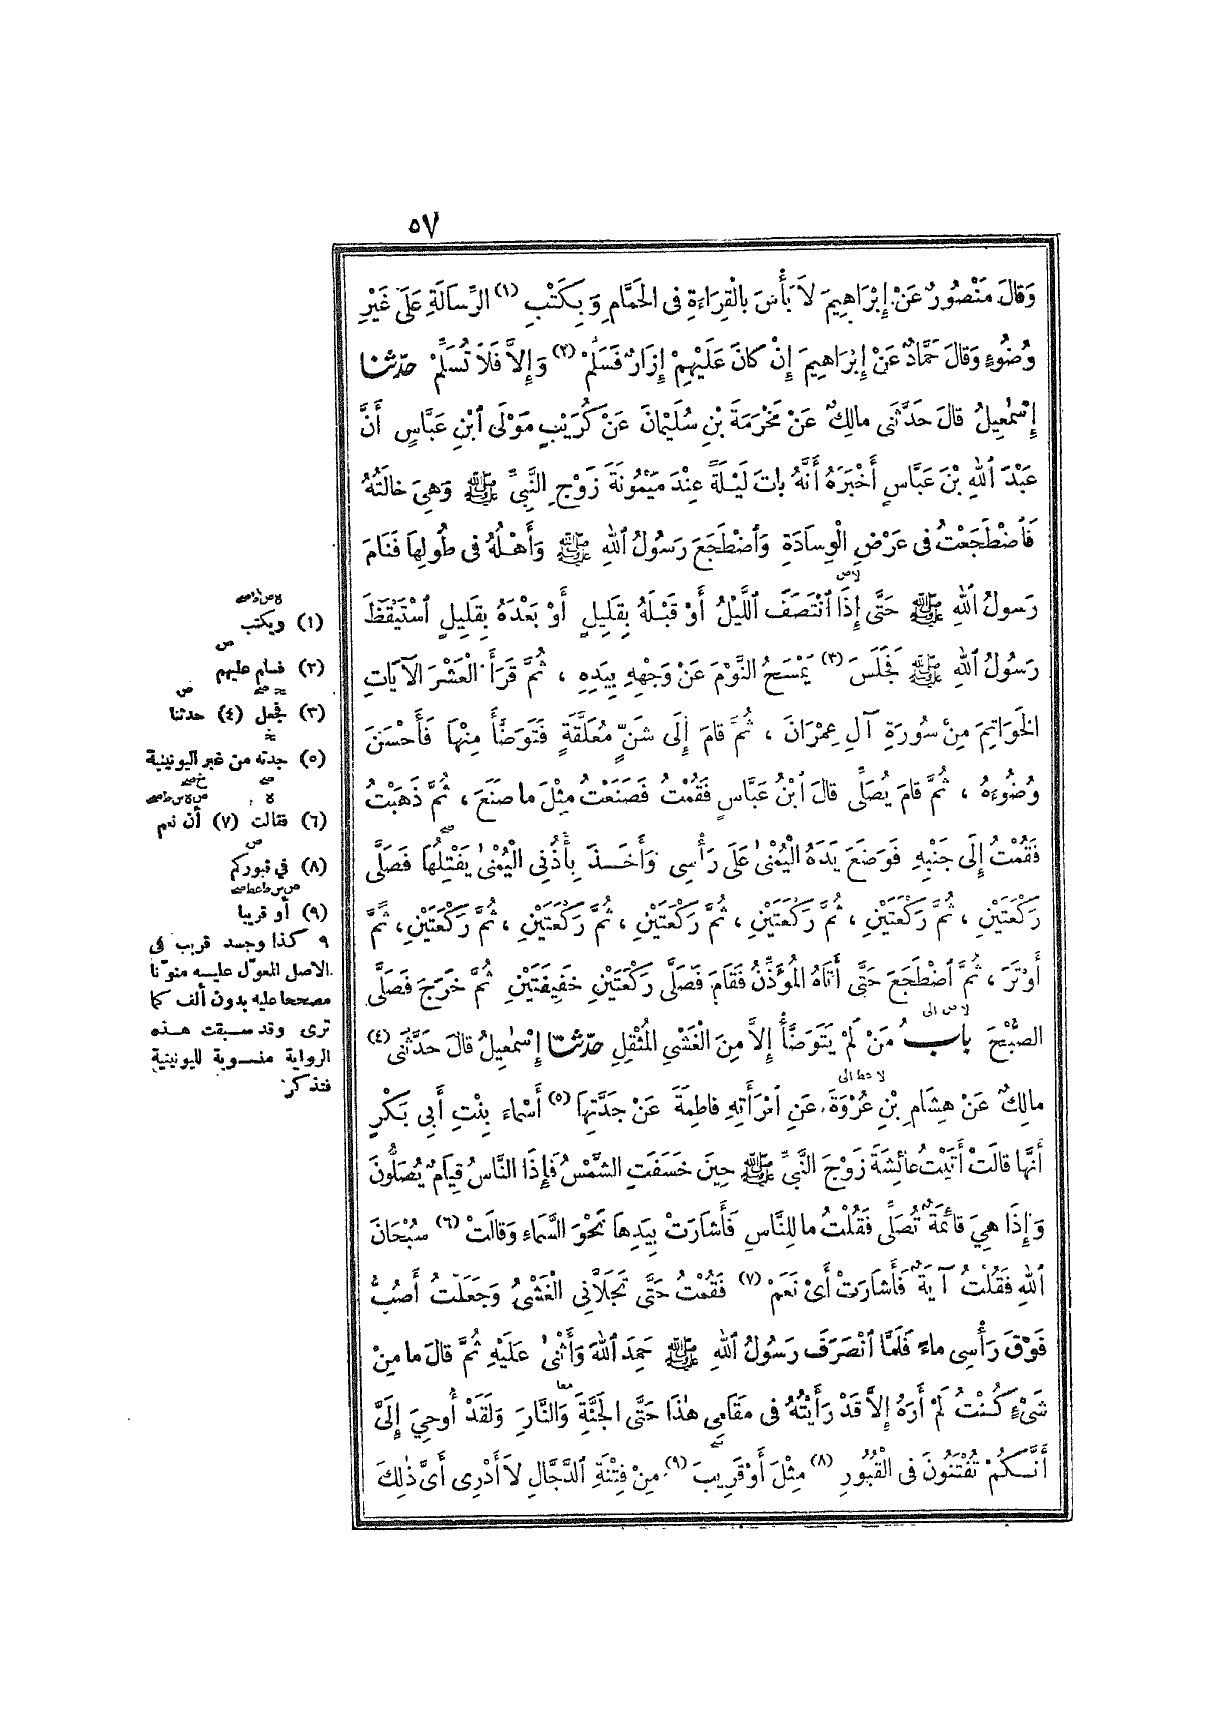 ٥٧
وَقَالَ مَنْصُورٌ عَنْ إِبْرَاهِيمَ لَا بَأْسَ بِالْقِرَاءَةِ فِى الْحَمَّامِ وَبِكَتْبِ (١) الرِّسَالَةِ عَلَى غَيْرِ
وُضُوءٍ وَقَالَ حَمَّادٌ عَنْ إِبْرَاهِيمَ إِنْ كَانَ عَلَيْهِمْ إِزَارٌ فَسَلِّمْ (٢) وَإِلاَّ فَلَا تُسَلِّمْ حَدَّثَنَا
إِسْمٰعِيلُ قَالَ حَدَّثَنِى مَالِكٌ عَنْ مَخْرَمَةَ بْنِ سُلَيْمَانَ عَنْ كُرَيْبٍ مَوْلَى ٱبْنِ عَبَّاسٍ أَنَّ
عَبْدَ ٱللهِ بْنَ عَبَّاسٍ أَخْبَرَهُ أَنَّهُ بَاتَ لَيْلَةً عِنْدَ مَيْمُونَةَ زَوْجِ النَّبِىِّ ﷺ وَهِىَ خَالَتُهُ
فَٱضْطَجَعْتُ فِى عَرْضِ الْوِسَادَةِ وَٱضْطَجَعَ رَسُولُ ٱللهِ ﷺ وَأَهْلُهُ فِى طُولِهَا فَنَامَ
رَسُولُ ٱللهِ ﷺ حَتَّى إِذَا ٱنْتَصَفَ اللَّيْلُ أَوْ قَبْلَهُ بِقَلِيلٍ أَوْ بَعْدَهُ بِقَلِيلٍ ٱسْتَيْقَظَ
رَسُولُ ٱللهِ ﷺ فَجَلَسَ (٣) يَمْسَحُ النَّوْمَ عَنْ وَجْهِهِ بِيَدِهِ ، ثُمَّ قَرَأَ الْعَشْرَ الْآيَاتِ
الْخَوَاتِيمَ مِنْ سُورَةِ آلِ عِمْرَانَ ، ثُمَّ قَامَ إِلَى شَنٍّ مُعَلَّقَةٍ فَتَوَضَّأَ مِنْهَا فَأَحْسَنَ
وُضُوءَهُ ، ثُمَّ قَامَ يُصَلِّى قَالَ ٱبْنُ عَبَّاسٍ فَقُمْتُ فَصَنَعْتُ مِثْلَ مَا صَنَعَ ، ثُمَّ ذَهَبْتُ
فَقُمْتُ إِلَى جَنْبِهِ فَوَضَعَ يَدَهُ الْيُمْنٰى عَلَى رَأْسِى وَأَخَذَ بِأُذُنِى الْيُمْنٰى يَفْتِلُهَا فَصَلَّى
رَكْعَتَيْنِ ، ثُمَّ رَكْعَتَيْنِ ، ثُمَّ رَكْعَتَيْنِ ، ثُمَّ رَكْعَتَيْنِ ، ثُمَّ رَكْعَتَيْنِ ، ثُمَّ رَكْعَتَيْنِ ، ثُمَّ
أَوْتَرَ ، ثُمَّ ٱضْطَجَعَ حَتَّى أَتَاهُ الْمُؤَذِّنُ فَقَامَ فَصَلَّى رَكْعَتَيْنِ خَفِيفَتَيْنِ ثُمَّ خَرَجَ فَصَلَّى
الصُّبْحَ بَابُ مَنْ لَمْ يَتَوَضَّأْ إِلاَّ مِنَ الْغَشْىِ الْمُثْقِلِ حَدَّثَنَا إِسْمٰعِيلُ قَالَ حَدَّثَنِى (٤)
مَالِكٌ عَنْ هِشَامِ بْنِ عُرْوَةَ عَنِ ٱمْرَأَتِهِ فَاطِمَةَ عَنْ جَدَّتِهَا (٥) أَسْمَاءَ بِنْتِ أَبِى بَكْرٍ
أَنَّهَا قَالَتْ أَتَيْتُ عَائِشَةَ زَوْجَ النَّبِىِّ ﷺ حِينَ خَسَفَتِ الشَّمْسُ فَإِذَا النَّاسُ قِيَامٌ يُصَلُّونَ
وَإِذَا هِىَ قَائِمَةٌ تُصَلِّى فَقُلْتُ مَا لِلنَّاسِ فَأَشَارَتْ بِيَدِهَا نَحْوَ السَّمَاءِ وَقَالَتْ (٦) سُبْحَانَ
ٱللهِ فَقُلْتُ آيَةٌ فَأَشَارَتْ أَىْ نَعَمْ (٧) فَقُمْتُ حَتَّى تَجَلَّانِى الْغَشْىُ وَجَعَلْتُ أَصُبُّ
فَوْقَ رَأْسِى مَاءً فَلَمَّا ٱنْصَرَفَ رَسُولُ ٱللهِ ﷺ حَمِدَ ٱللهَ وَأَثْنٰى عَلَيْهِ ثُمَّ قَالَ مَا مِنْ
شَىْءٍ كُنْتُ لَمْ أَرَهُ إِلاَّ قَدْ رَأَيْتُهُ فِى مَقَامِى هٰذَا حَتَّى الْجَنَّةَ وَالنَّارَ وَلَقَدْ أُوحِىَ إِلَىَّ
أَنَّكُمْ تُفْتَنُونَ فِى الْقُبُورِ (٨) مِثْلَ أَوْ قَرِيبَ (٩) مِنْ فِتْنَةِ ٱلدَّجَّالِ لَا أَدْرِى أَىَّ ذٰلِكَ
(١) ويكتب
(٢) فسلم عليهم
(٣) فجعل (٤) حدثنا
(٥) جدته من غير اليونينية
(٦) فقالت (٧) أن نعم
(٨) في قبوركم
(٩) أو قريبا
٩ كذا وجد قريب فى
الاصل المعوّل عليه منوّنا
مصححا عليه بدون ألف كما
ترى وقد سبقت هذه
الرواية منسوبة لليونينية
فتذكر